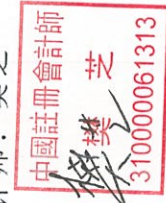 师：樊芝
中國註冊會計師
樊芝
310000061313